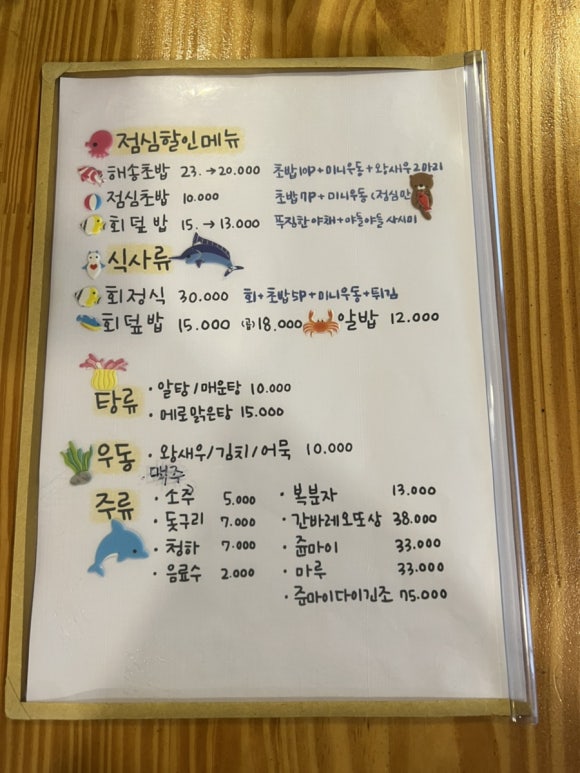 점심할인메뉴
해송초밥 23. → 20.000 초밥10P + 미니우동 + 왕새우2마리
점심초밥 10.000 초밥7P + 미니우동 (점심만
회덮밥 15. → 13.000 푸짐한 야채 + 야들야들 사시미
식사류
회정식 30.000 회 + 초밥5P + 미니우동 + 튀김
회덮밥 15.000 (곱)18.000 알밥 12.000
탕류
· 알탕/매운탕 10.000
· 메로맑은탕 15.000
우동 · 왕새우/김치/어묵 10.000
주류
맥주
· 소주 5.000 · 복분자 13.000
· 돗구리 7.000 · 간바레오또상 38.000
· 청하 7.000 · 쥰마이 33.000
· 음료수 2.000 · 마루 33.000
· 쥰마이다이긴조 75.000